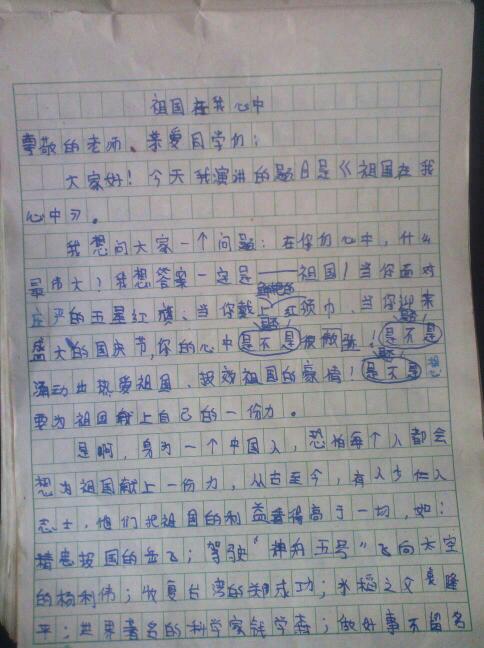 祖国在我心中
尊敬的老师、亲爱同学们：
大家好！今天我演讲的题目是《祖国在我
心中》。
我想问大家一个问题：在你们心中，什么
最伟大？我想答案一定是——祖国！当你面对
庄严的五星红旗、当你戴上红领巾、当你迎来
盛大的国庆节，你的心中是不是很激动！是不是
涌动出热爱祖国、报效祖国的豪情！是不是想
要为祖国献上自己的一份力。
是啊，身为一个中国人，恐怕每个人都会
想为祖国献上一份力，从古至今，有多少仁人
志士，他们把祖国的利益看得高于一切，如：
精忠报国的岳飞；驾驶"神舟五号"飞向太空
的杨利伟；收复台湾的郑成功；水稻之父袁隆
平；世界著名的科学家钱学森；做好事不留名